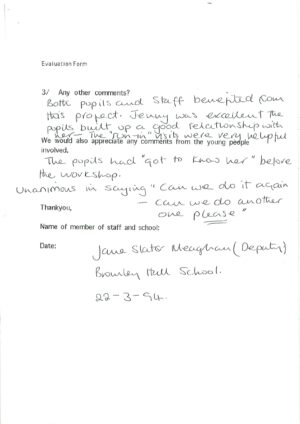 Evaluation Form
3/ Any other comments?
Both pupils and Staff benefited from
this project. Jenny was excellent the
pupils built up a good relationship with
her — The "run-in" visits were very helpful
We would also appreciate any comments from the young people
involved,
The pupils had "got to know her" before
the workshop.
Unanimous in saying "Can we do it again
— can we do another
one please"
Thankyou,
Name of member of staff and school:
Jane Slator Meaghan (Deputy)
Bromley Hall School.
Date:
22-3-94.